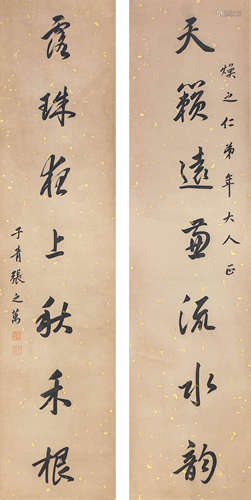 燦之仁弟年大人正
天籟遠兼流水韵
露珠夜上秋禾根
子青張之萬